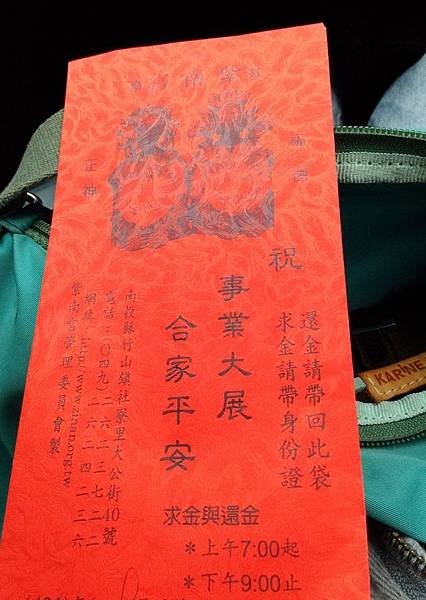 紫南宮
福德
正神
祝
事業大展
合家平安
還金請帶回此袋
求金請帶身份證
南投縣竹山鎮社寮里大公街40號
電話：〇四九-二六二三七二二
二六二四二三六
網址：http://www.zinan.org.tw
紫南宮管理委員會製
求金與還金
*上午7:00起
*下午9:00止
KARINE